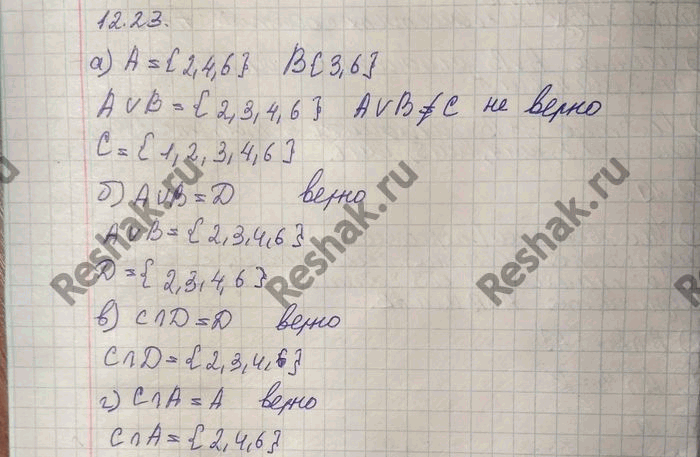 12.23.
а) A = {2,4,6} B{3,6}
A ∪ B = {2,3,4,6} A∪B ≠ C не верно
C = {1,2,3,4,6}
б) A∪B = D верно
A∪B = {2,3,4,6}
D = {2,3,4,6}
в) C∩D = D верно
C∩D = {2,3,4,6}
г) C∩A = A верно
C∩A = {2,4,6}
Reshak.ru
Reshak.ru
Reshak.ru
Reshak.ru